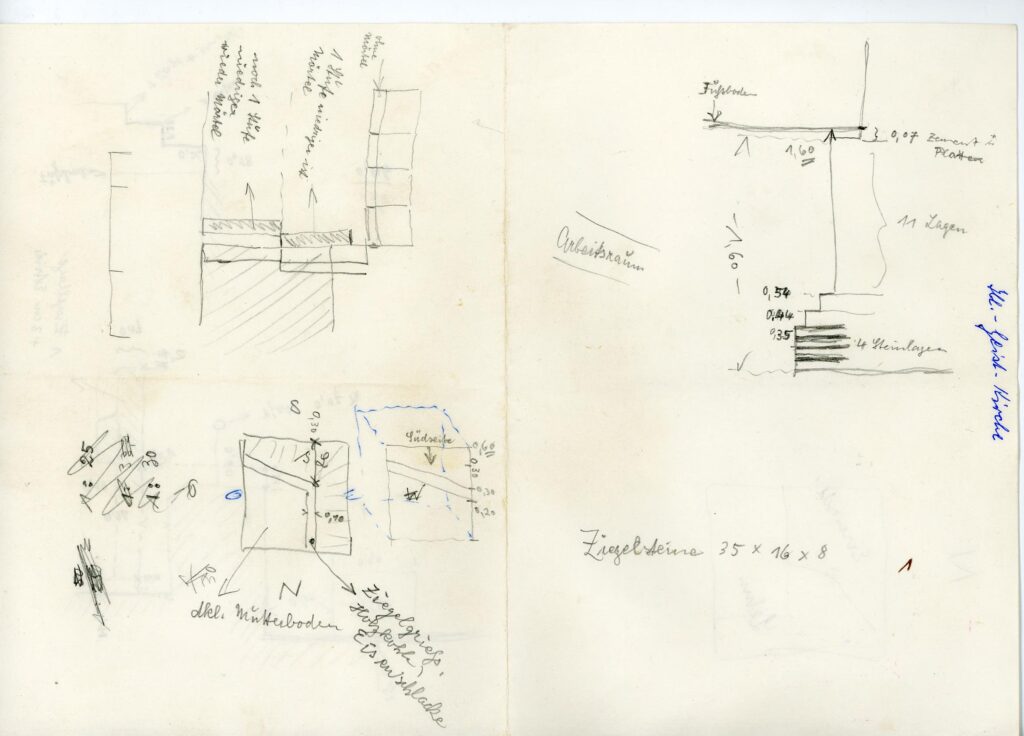 ohne
Mörtel
1 Stufe niedriger ist
Mörtel
noch 1 Stufe
niedriger
wieder Mörtel
Fußboden
0,07 Zement u
Platten
1,60
11 Lagen
-1,60-
Arbeitsraum
0,54
0,44
0,35
4 Steinlagen
Hl.-Geist-Kirche
Ziegelsteine 35 x 16 x 8
1
S
0,30
Südseite
0,60
0,30
0,30
0,20
O
W
0,40
N
dkl. Mutterboden
Ziegelgries,
Holzkohle,
Eisenschlacke
1:25
1:30